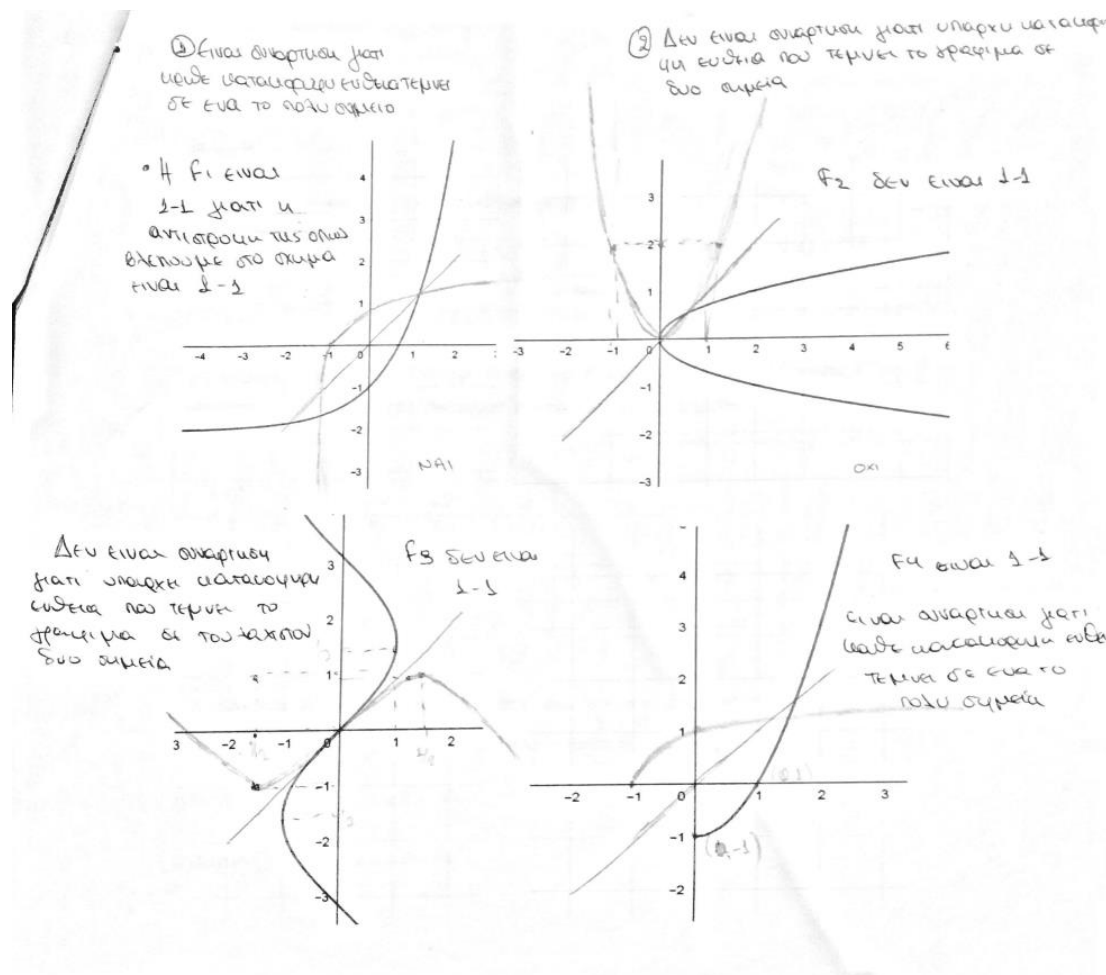 ① Ειναι συναρτηση γιατι
καθε κατακορυφη ευθεια τεμνει
σε ενα το πολυ σημειο
• Η F1 ειναι
1-1 γιατι η
αντιστροφη της οπως
βλεπουμε στο σχημα
ειναι 1-1
4
3
2
1
-4 -3 -2 -1 0 1 2
-1
-2
-3
ΝΑΙ
② Δεν ειναι συναρτηση γιατι υπαρχει κατακορυ
φη ευθεια που τεμνει το γραφημα σε
δυο σημεία
F2 δεν ειναι 1-1
3
2
1
-3 -2 -1 0 1 2 3 4 5 6
-1
-2
-3
ΟΧΙ
Δεν ειναι συναρτηση
γιατι υπαρχει κατακορυφη
ευθεια που τεμνει το
γραφημα σε τουλαχιστον
δυο σημεία
F3 δεν ειναι
1-1
3
2
1
3 -2 -1 0 1 2
-1
-2
-3
F4 ειναι 1-1
ειναι συναρτηση γιατι
καθε κατακορυφη ευθε
τεμνει σε ενα το
πολυ σημεία
4
3
2
1
-2 -1 0 1 2 3
-1
(0,-1)
-2